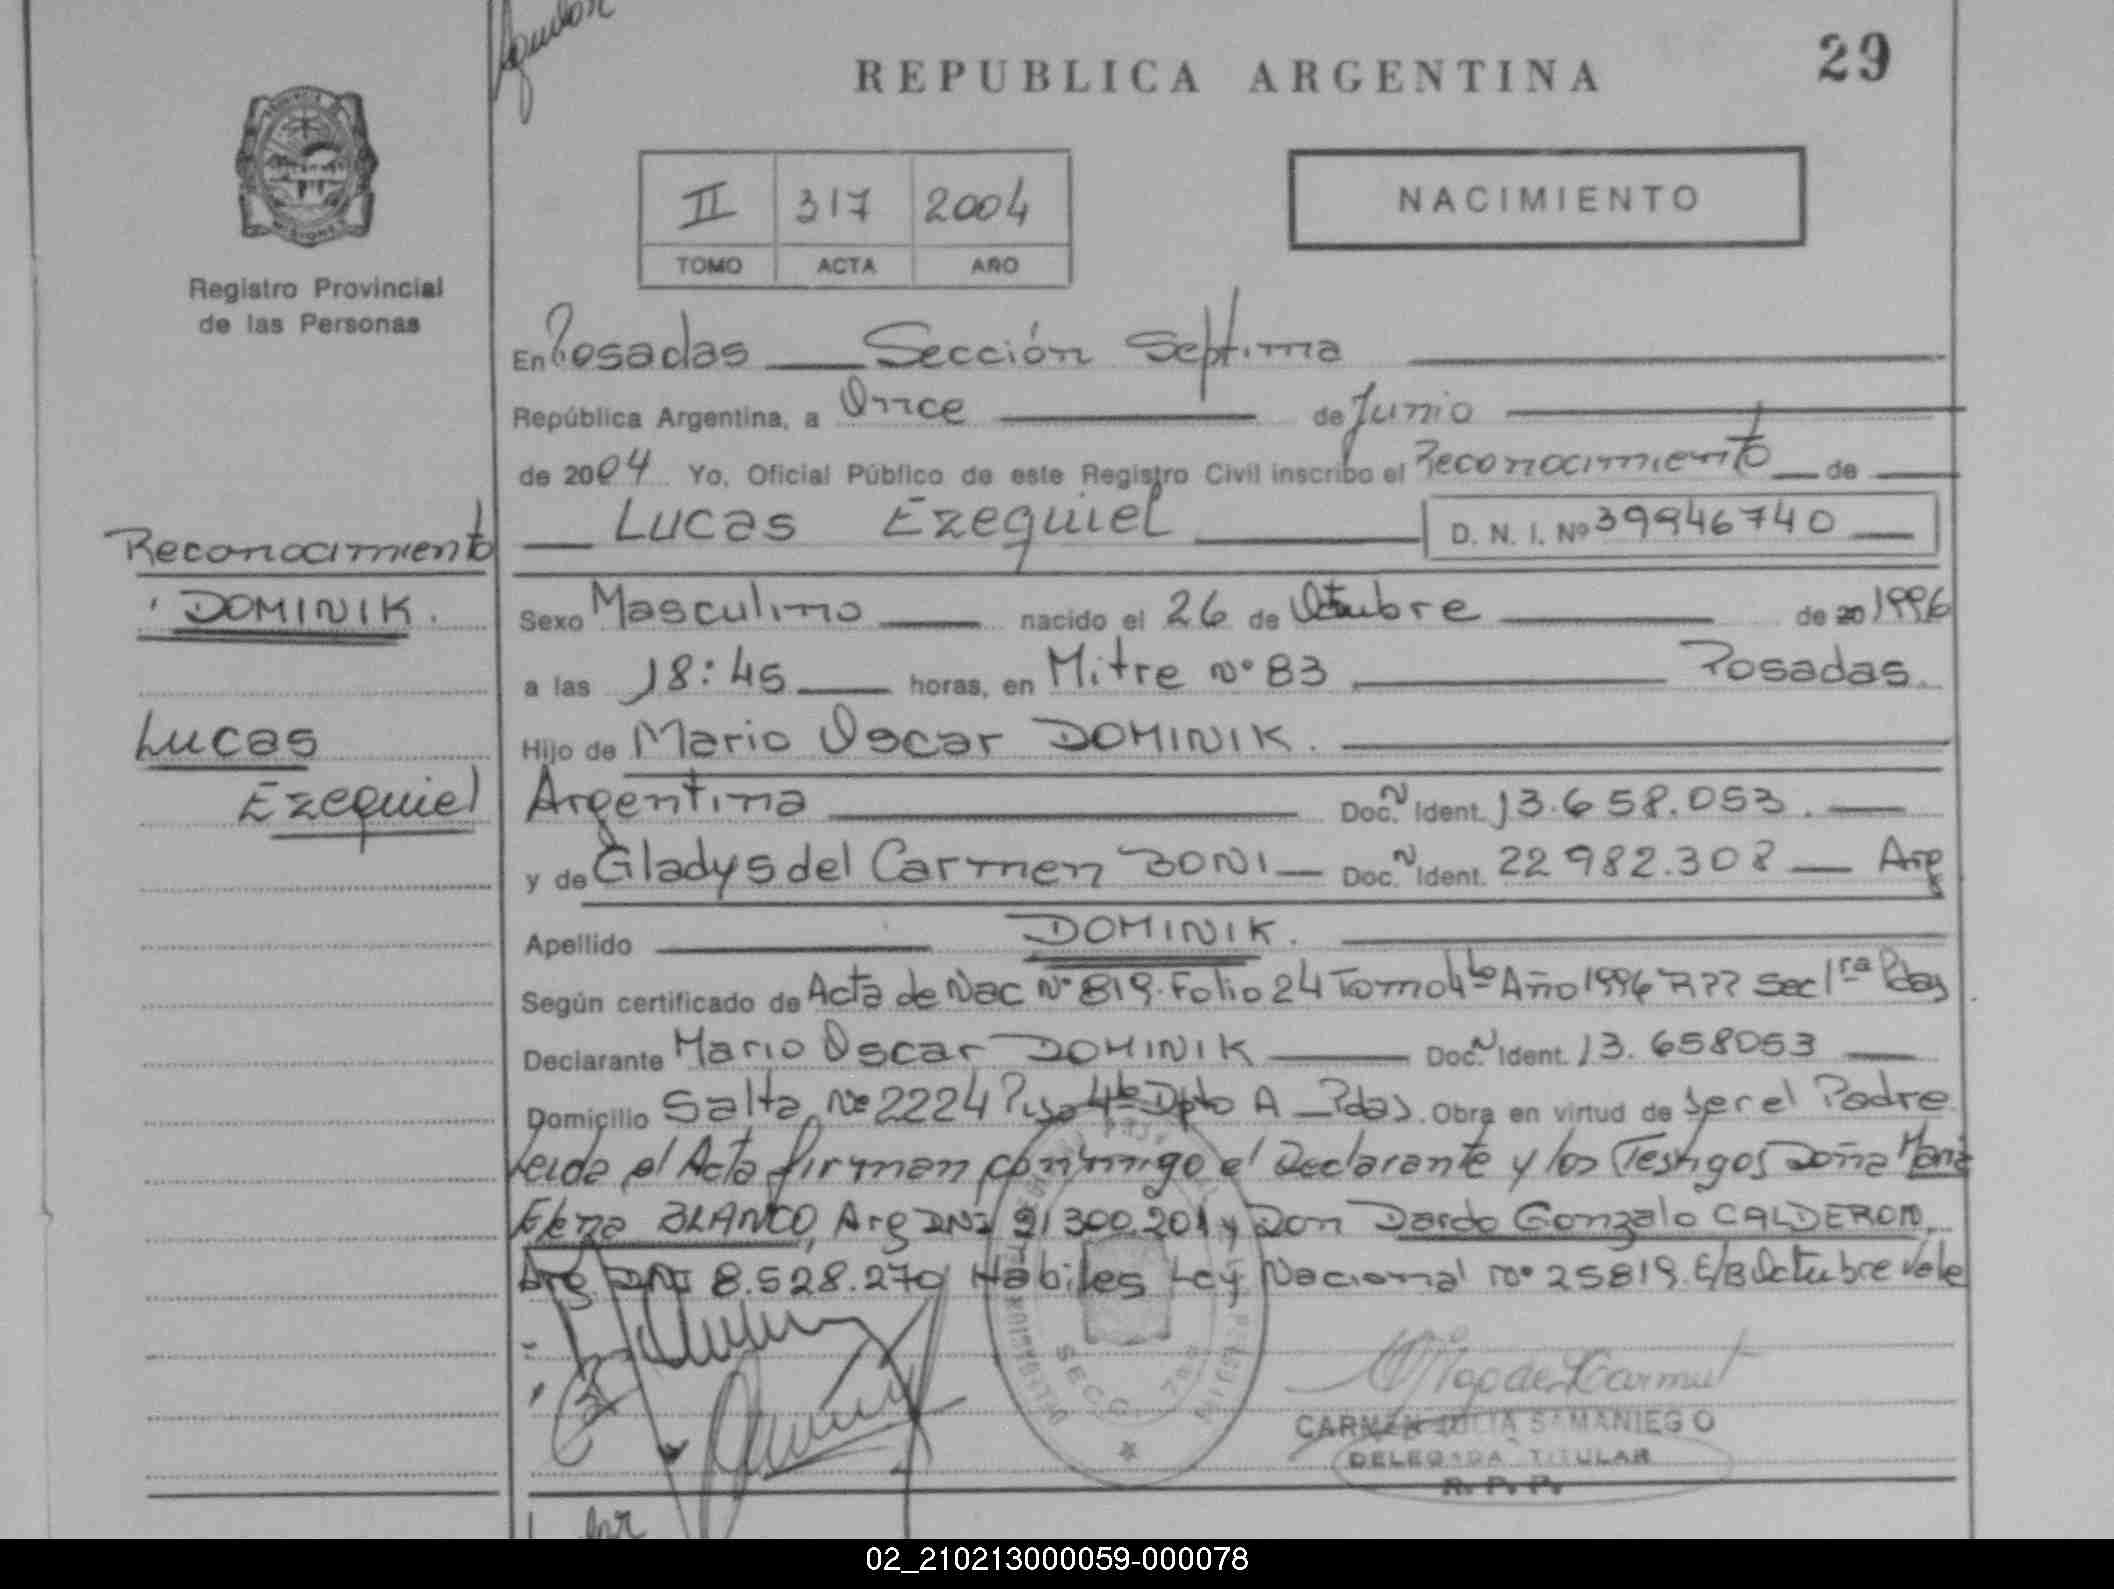 REPUBLICA ARGENTINA
29
NACIMIENTO
II 317 2004
TOMO ACTA AÑO
Registro Provincial
de las Personas
En Posadas Sección Septima
República Argentina, a Once de Junio
de 2004 Yo, Oficial Público de este Registro Civil inscribo el Reconocimiento de
Lucas Ezequiel D. N. I. Nº 39946740
Reconocimiento
DOMINIK.
Lucas
Ezequiel
Sexo Masculino nacido el 26 de Octubre de 20 1996
a las 18:45 horas, en Mitre Nº 83 Posadas.
Hijo de Mario Oscar DOMINIK.
Argentina Doc. N Ident. 13.658.053.
y de Gladys del Carmen BONI Doc. N Ident. 22 982.308 Arg
Apellido DOMINIK.
Según certificado de Acta de Nac Nº 819. Folio 24 Tomo 4to Año 1996 Sec 1ra Pdas
Declarante Mario Oscar DOMINIK Doc. N Ident. 13.658053
Domicilio Salta Nº 2224 Piso 4to Dpto A Pdas. Obra en virtud de ser el Padre
Leida el Acta firman conmigo el Declarante y los Testigos Doña Maria
Elena BLANCO, Arg DNI 21300.201 y Don Dardo Gonzalo CALDERON
Arg DNI 8.528.270 Habiles Ley Nacional nº 25819. E/B Octubre Vale
SECC. 7ma
CARMEN JULIA SAMANIEGO
DELEGADA TITULAR
R. P. P.
02_210213000059-000078